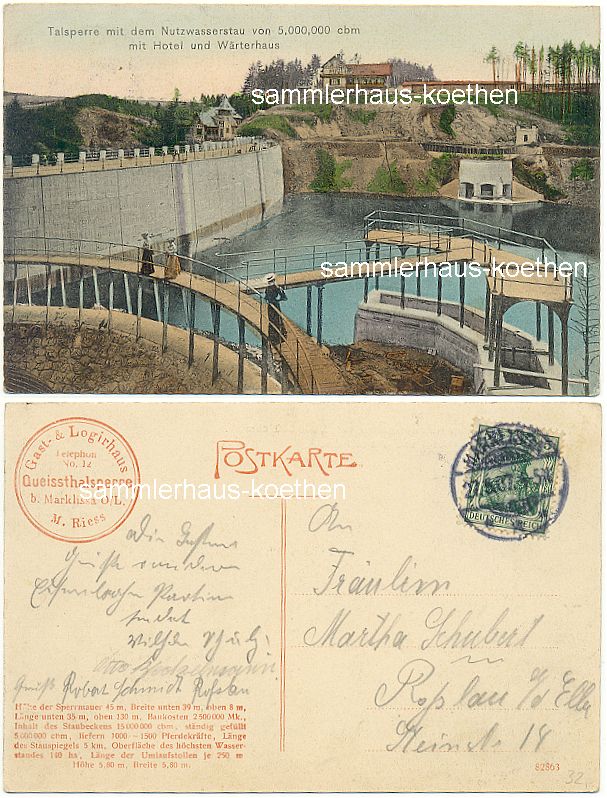 Talsperre mit dem Nutzwasserstau von 5,000,000 cbm
mit Hotel und Wärterhaus
sammlerhaus-koethen
sammlerhaus-koethen
Gast- & Logirhaus
Telephon
No. 12
Queissthalsperre
b. Marklissa O/L.
M. Riess
POSTKARTE
sammlerhaus-koethen
DEUTSCHES REICH
Die besten
Grüße von der
Partie
sendet
An
Fräulein
Martha Schubert
Roßlau a/d Elbe
Steinstr 18
Gruß Robert Schmidt Roßlau
Höhe der Sperrmauer 45 m, Breite unten 39 m, oben 8 m,
Länge unten 35 m, oben 130 m, Baukosten 2500000 Mk.,
Inhalt des Staubeckens 15000000 cbm, ständig gefüllt
5000000 cbm, liefern 1000–1500 Pferdekräfte, Länge
des Stauspiegels 5 km, Oberfläche des höchsten Wasser-
standes 140 ha, Länge der Umlaufstollen je 250 m
Höhe 5,80 m, Breite 5,80 m.
82863
32